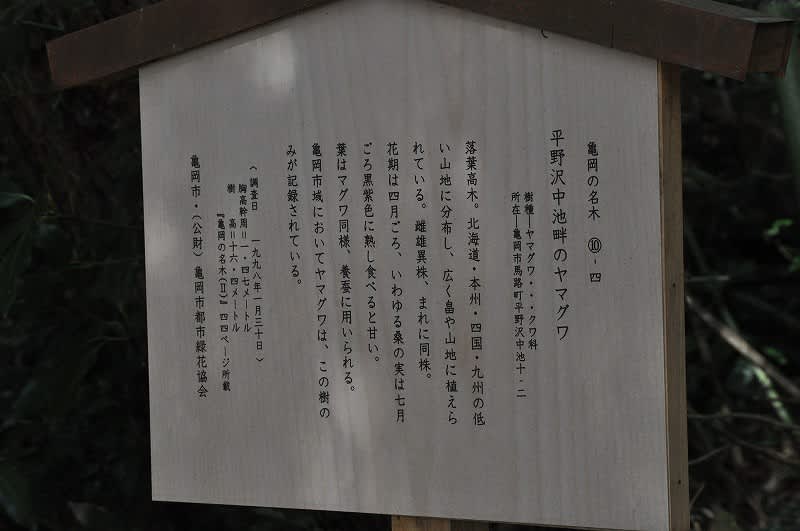 亀岡の名木 ⑩-四
平野沢中池畔のヤマグワ
樹種―ヤマグワ・・・クワ科
所在―亀岡市馬路町平野沢中池十-二
落葉高木。北海道・本州・四国・九州の低
い山地に分布し、広く畠や山地に植えら
れている。雌雄異株、まれに同株。
花期は四月ごろ、いわゆる桑の実は七月
ごろ黒紫色に熟し食べると甘い。
葉はマグワ同様、養蚕に用いられる。
亀岡市域においてヤマグワは、この樹の
みが記録されている。
（調査日 一九九八年一月三十日）
胸高幹周＝一・四七メートル
樹 高＝十六・四メートル
『亀岡の名木(Ⅱ)』四四ページ所載
亀岡市・（公財）亀岡市都市緑花協会